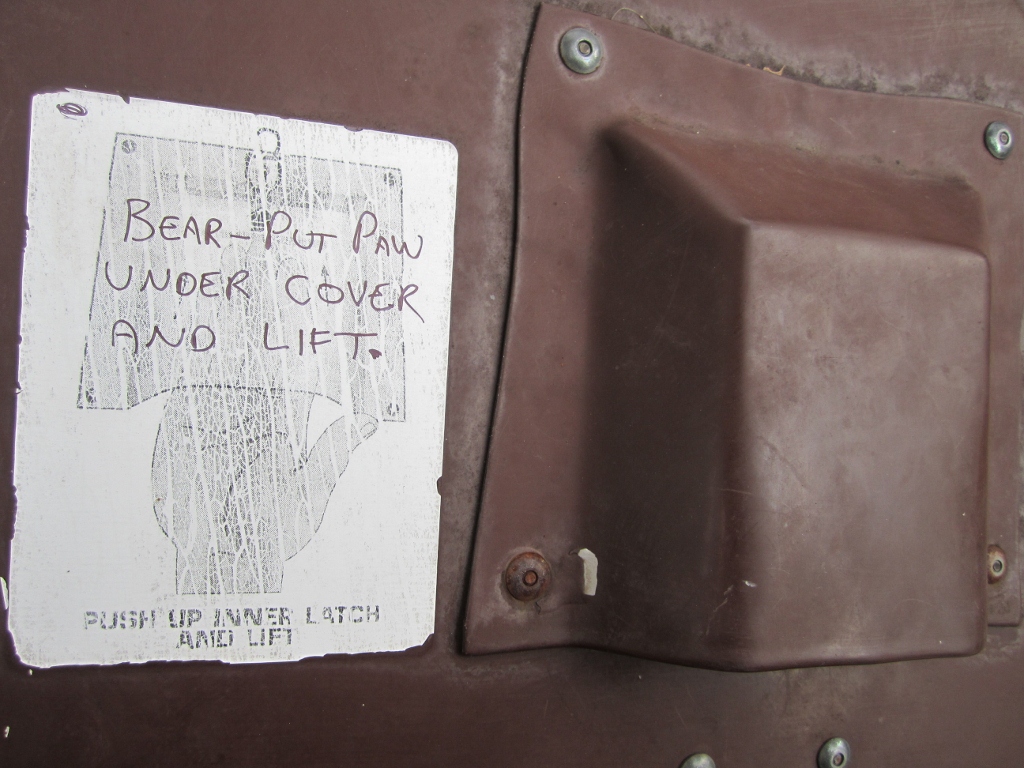 BEAR - PUT PAW
UNDER COVER
AND LIFT.
PUSH UP INNER LATCH
AND LIFT